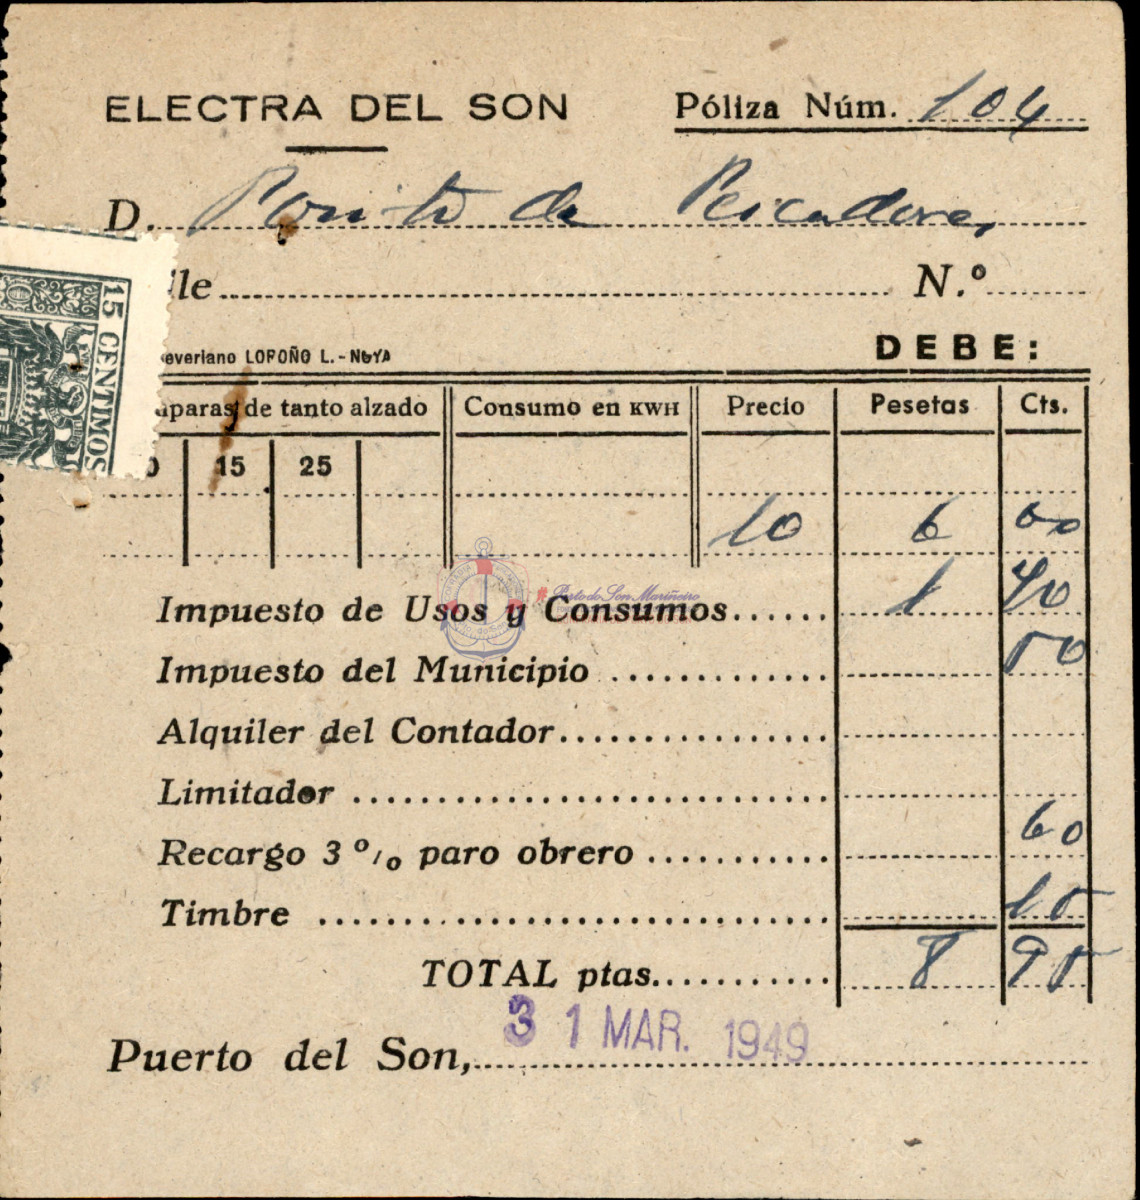 ELECTRA DEL SON
Póliza Núm. 104
D. Posito de Pescadores
lle N.º
15 CENTIMOS
everiano L. - NOYA
DEBE:
paras de tanto alzado Consumo en KWH Precio Pesetas Cts.
0 15 25
10 6 00
Impuesto de Usos y Consumos...... 1 70
Impuesto del Municipio ............. 50
Alquiler del Contador................
Limitador ............................
Recargo 3 º/o paro obrero ........... 60
Timbre .............................. 15
TOTAL ptas........... 8 95
Puerto del Son, 31 MAR. 1949
Porto do Son Mariñeiro